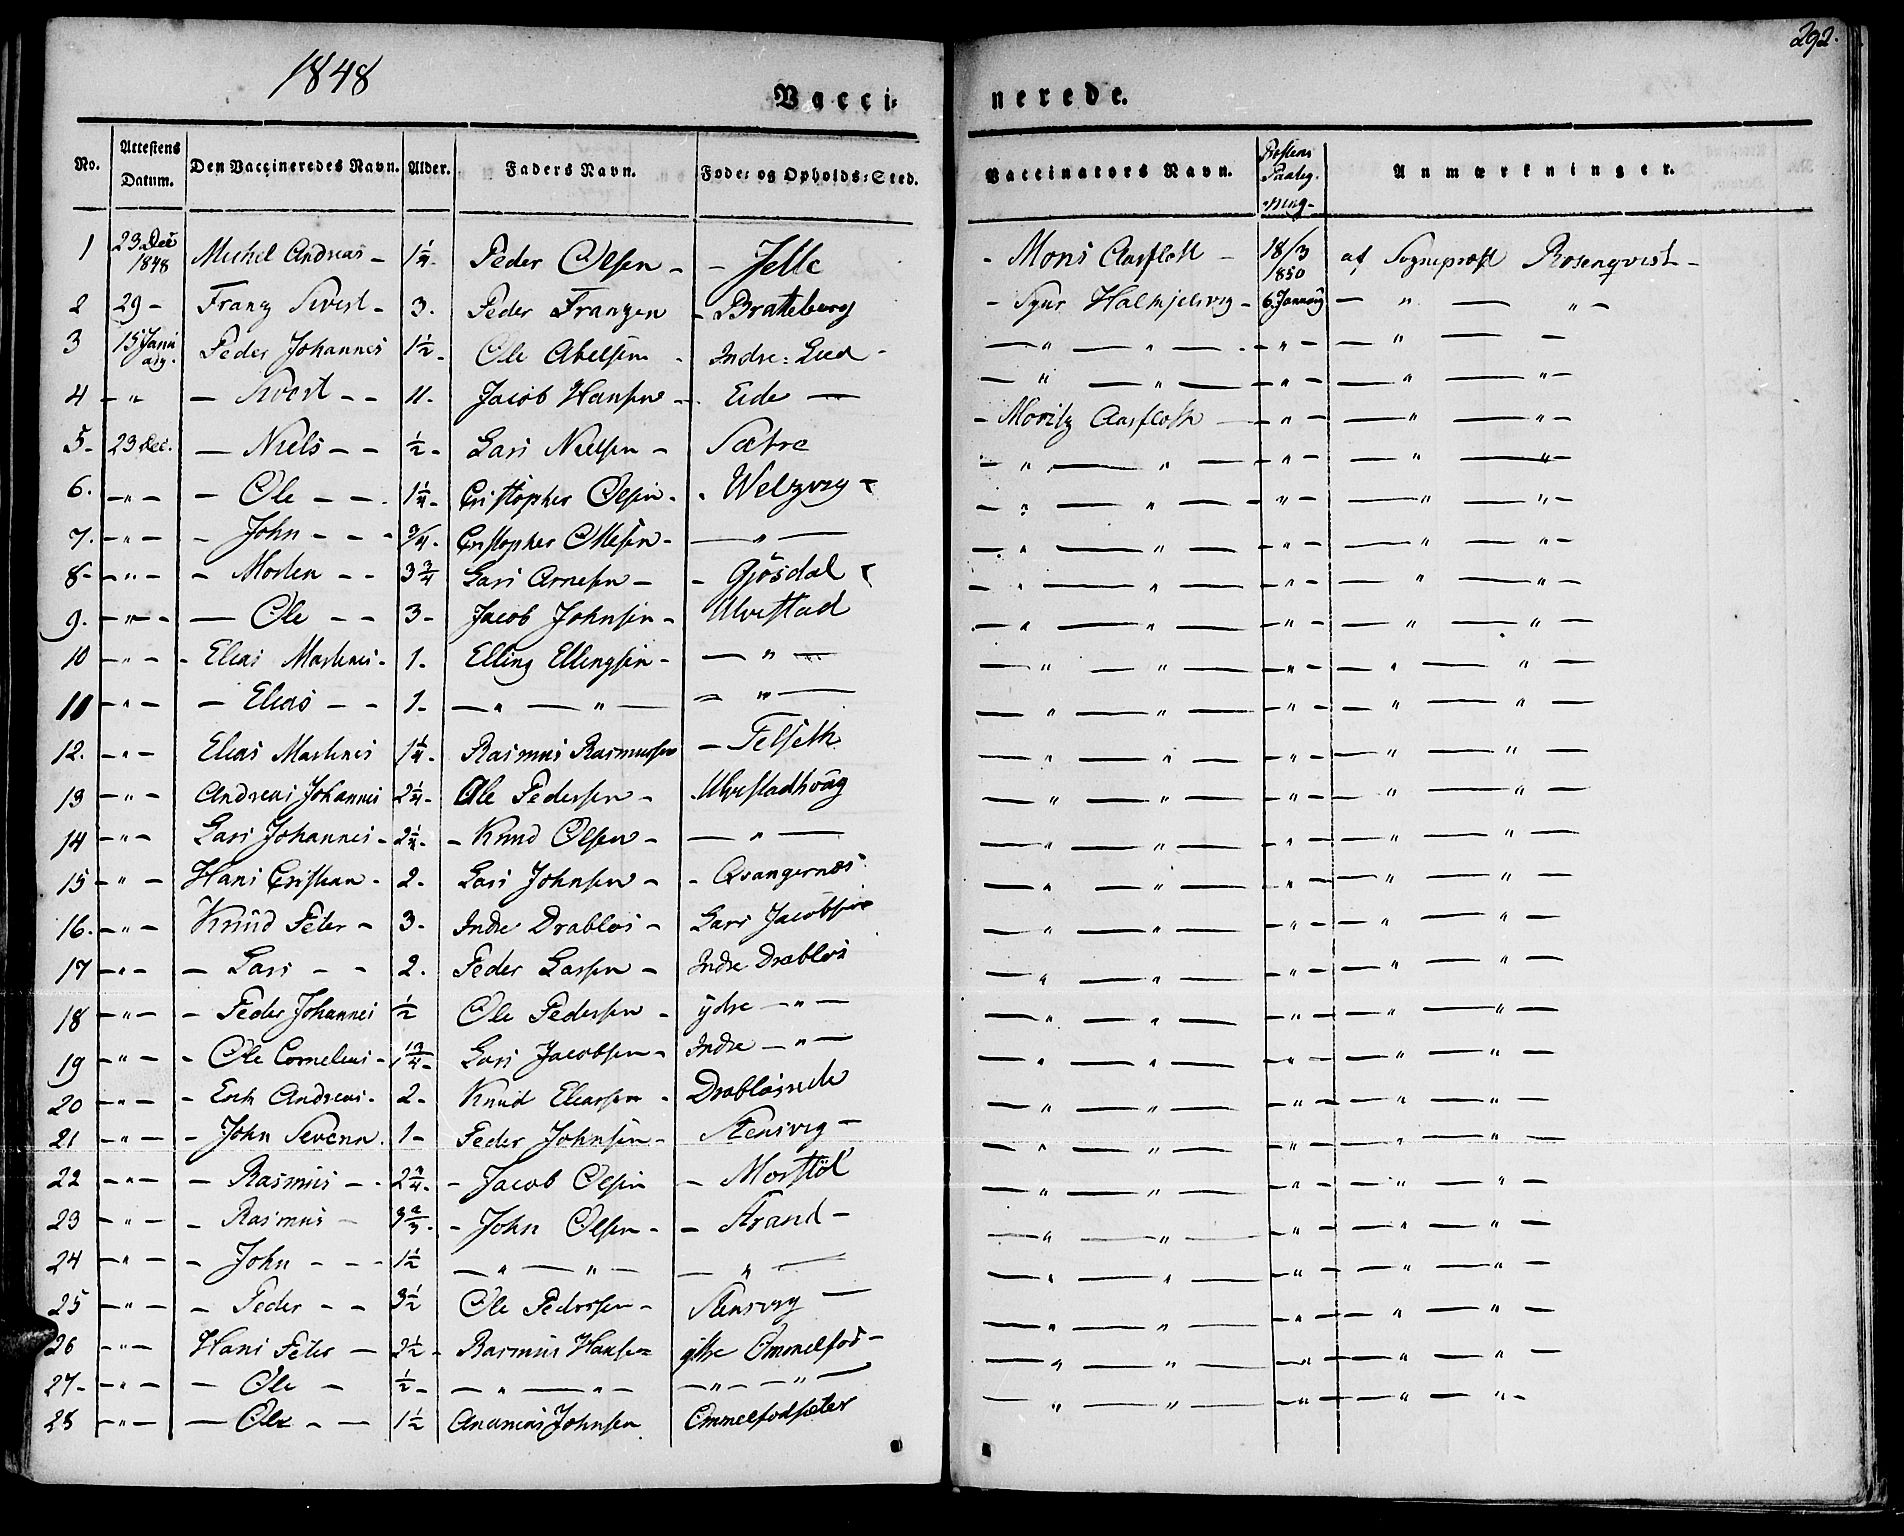 1848
292.
Vacci-
nerede.
No. Attestens Datum. Den Vaccineredes Navn. Alder. Faders Navn. Føde- og Opholds-Sted. Vaccinators Navn. Anmærkninger.
1 23 Dec 1848 Michel Andreas - 1 1/4 - Peder Olsen - - Jelle - Mons Aarfloth - 18/3 1850 af Sogneprost Rosenqvist -
2 29 - Franz Sivert - 3. Peder Franzen - Bratteberg - Syur Halkjelsvig - 6 - " - " -
3 15 Peder Johannes 1 1/2 - Ole Abelsen - Indre: Eed - - " - " - - " - - " - -
4 - " - Sivert - - 11. Jacob Hansen - Eide - - " - " - - " - - " - " -
5 - 23 Dec. - Niels - - 1/2 - Lars Nielsen - Sætre - Moritz Aarfloth - - " - - " - " -
6. - " - - Ole - - 1 1/4 - Cristopher Olsen - - Welzvig - - " - " - - " - - " - " -
7. - " - - John - - - 3/4 - Cristopher Ottesen - - " - - " - " - - " - - " - " -
8 - - " - - Morten - - 3 3/4 Lars Arnesen - - Gjøsdal - " - " - - " - - " - " -
9. - " - - Ole - - 3 - Jacob Johnsen - Ulvestad - " - " - - " - - " - " -
10 - " - - Elias Martinus - 1. Elling Ellingsen - - " - - " - " - - " - - " - " -
11 - " - - Elias - - 1 - - " - " - - " - - " - " - - " - - " - " -
12. - " - Elias Martinus 1 1/4 - Rasmus Rasmussen - Velseth - " - " - - " - - " - " -
13 - " - Andreas Johannes 2 1/4 - Ole Pedersen - Ulvestadhvag - " - " - - " - - " - " -
14 - " - Lars Johannes - 2 1/4 - - Knud Olsen - - " - - " - " - - " - - " - " -
15 - " - Hans Cristian - 2 - Lars Johnsen - - Qvangernæs - " - " - - " - - " - " -
16. - " - Knud Peter - 3 - Indre Drabløs - Lars Jacobsen - " - " - - " - - " - " -
17 - " - - Lars - - 2. Peder Larsen - Indre Drabløs - " - " - - " - - " - " -
18 - " - - Peder Johannes 1/2 Ole Pedersen - ydre - " - - " - " - - " - - " - " -
19 - " - - Ole Cornelius - 1 3/4 - Lars Jacobsen - Indre - " - - " - " - - " - - " - " -
20 - " - - Erik Andreas - 2 - Knud Eliassen - - " - " - - " - - " - " -
21 - " - - John 1 - Peder Johnsen - Stensvig - - " - " - - " - - " - " -
22 - " - - Rasmus - 2 3/4 - - Jacob Olsen - Morstøl - " - " - - " - - " - " -
23 - " - - Rasmus - 3 2/3 - - John Olsen - - Strand - - " - " - - " - - " - " -
24 - " - - John - - - 1 1/2 - " - " - - " - - " - " - - " - - " - " -
25 - " - - Peder - - 3 1/2 Ole Pedersen - Stensvig - - " - " - - " - - " - " -
26 - " - Hans Peter - 2 1/2 - Rasmus Hansen Emmelfod - - " - " - - " - - " - " -
27 - - " - - Ole - 1/2 - - " - " - - " - " - - " - " - - " - - " - " -
28 - " - - Ole - - 1 1/2 Johnsen Emmelfodsæter - " - " - - " - - " - " -